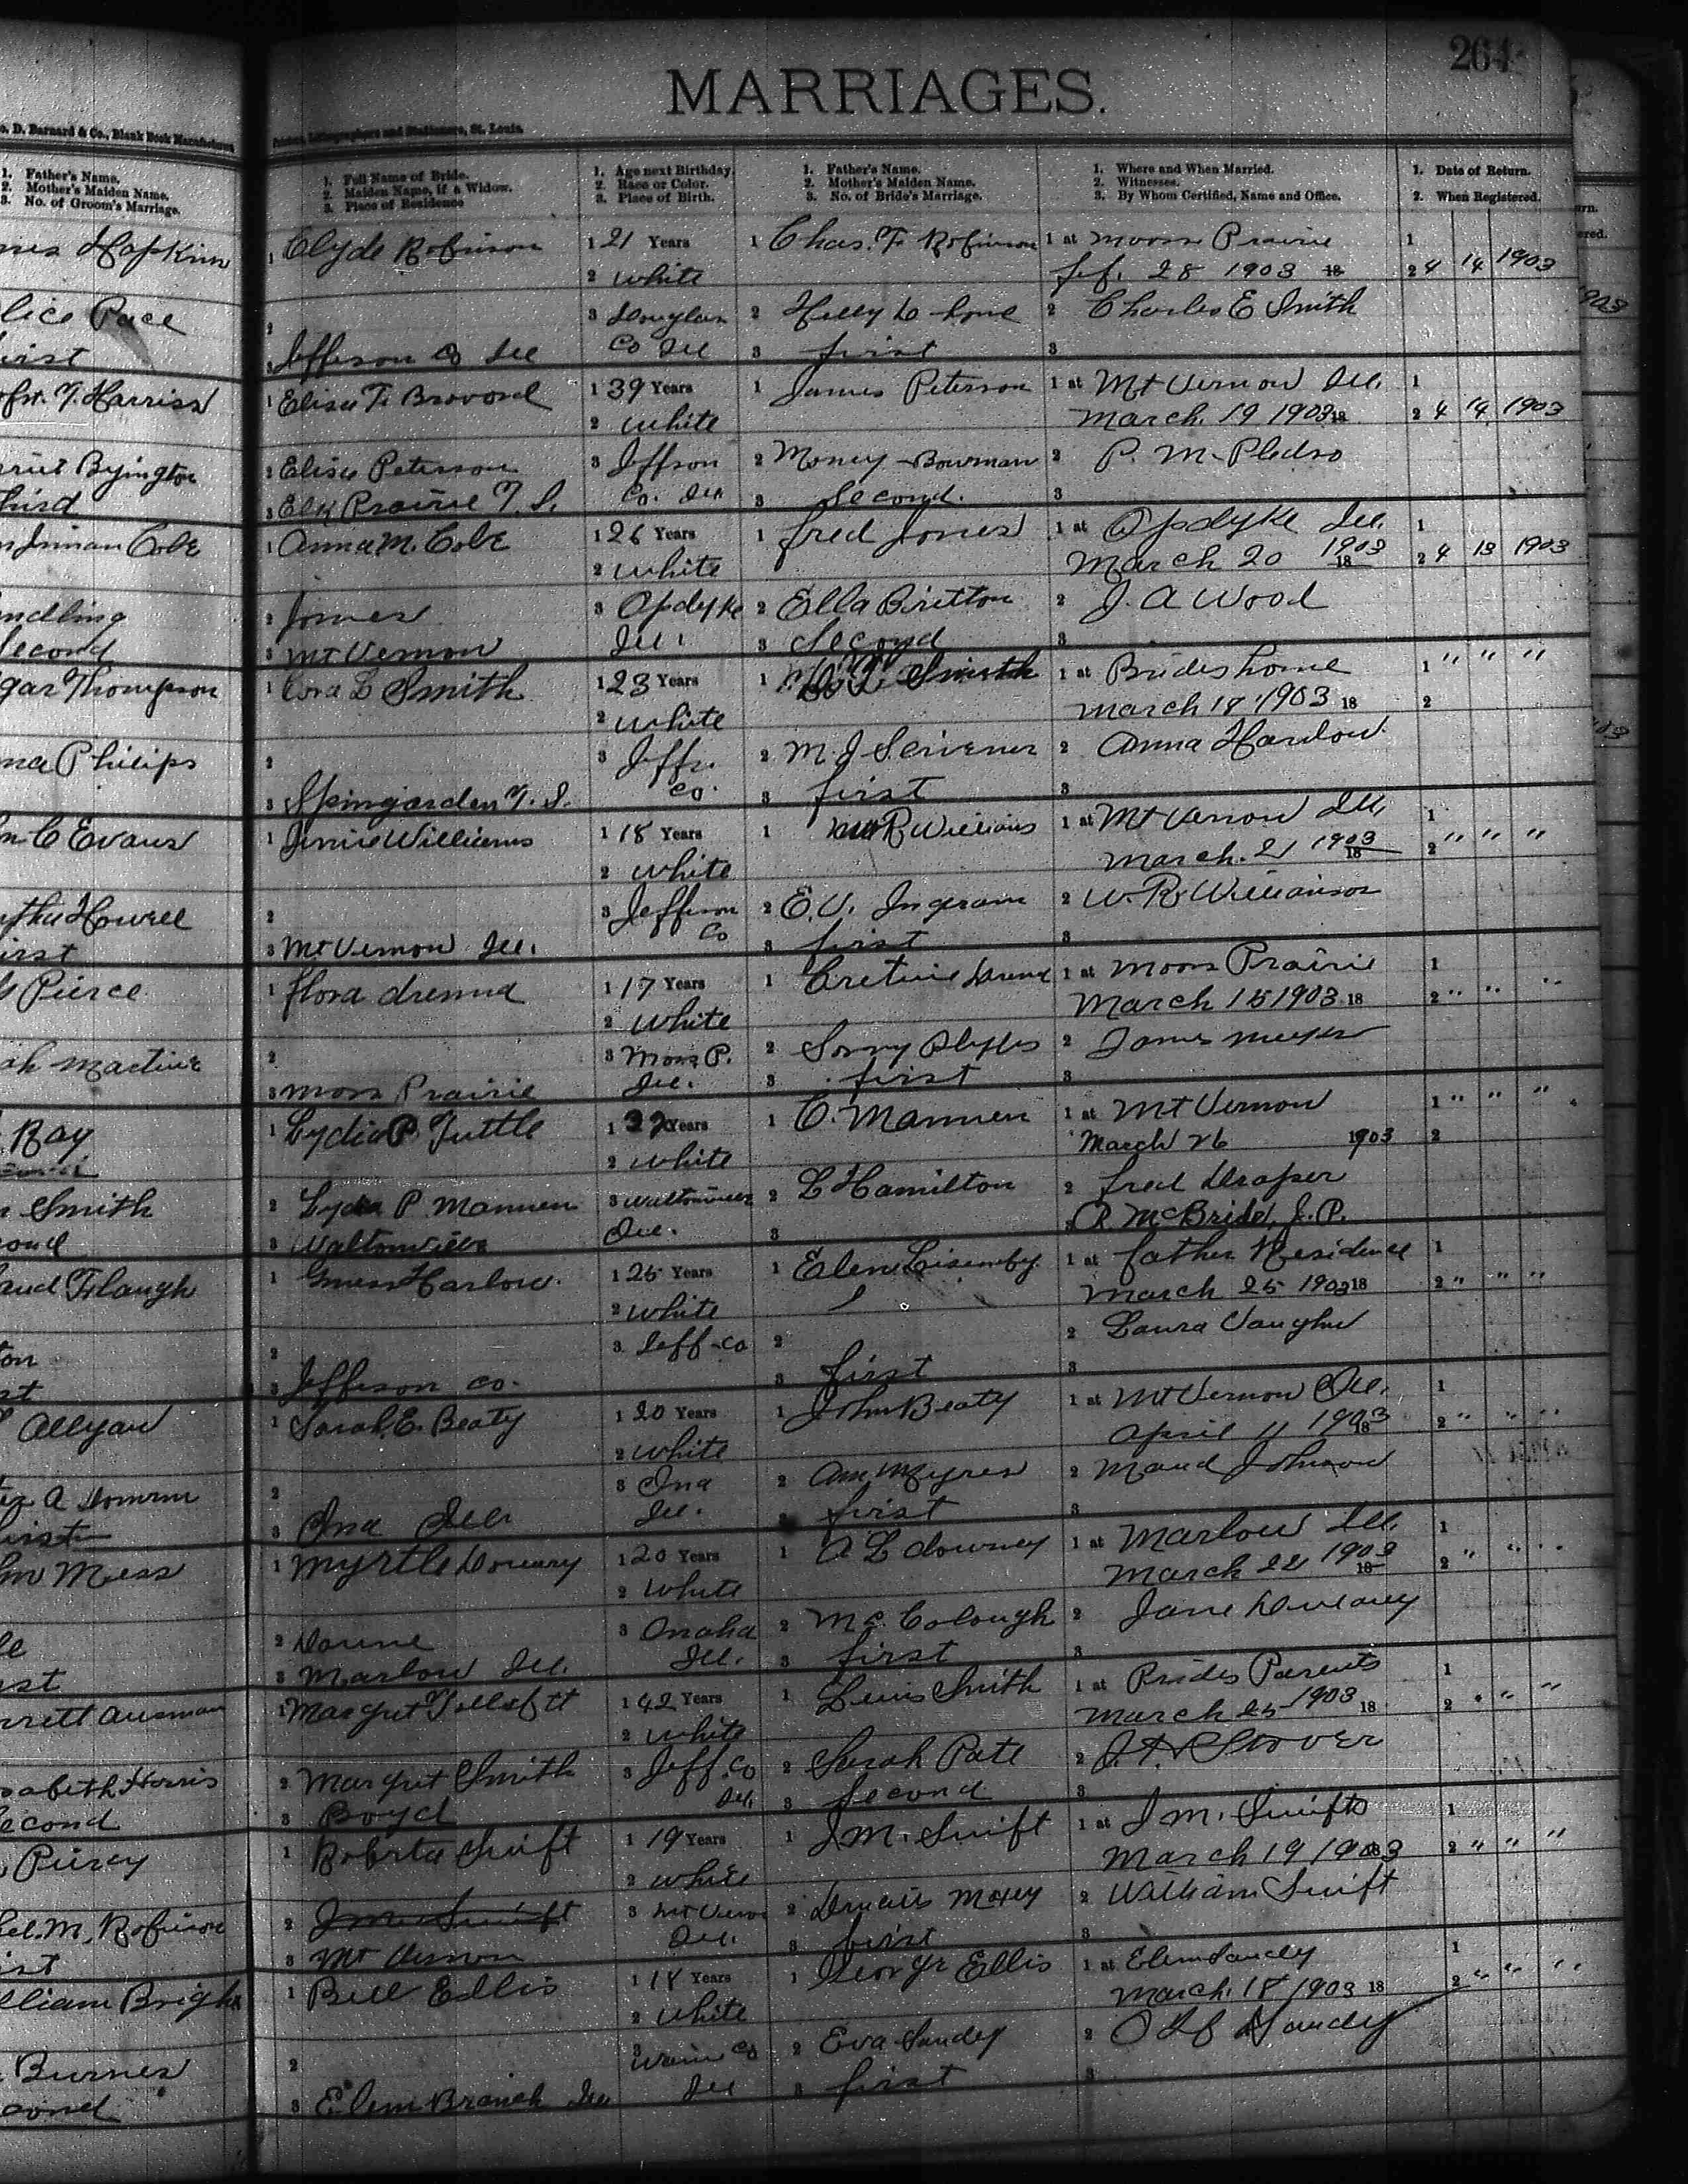 264
MARRIAGES.
o. D. Barnard & Co., Blank Book Manufacturers, Printers, Lithographers and Stationers, St. Louis.
1. Father's Name.
2. Mother's Maiden Name.
3. No. of Groom's Marriage.
1. Full Name of Bride.
2. Maiden Name, if a Widow.
3. Place of Residence
1. Age next Birthday.
2. Race or Color.
3. Place of Birth.
1. Father's Name.
2. Mother's Maiden Name.
3. No. of Bride's Marriage.
1. Where and When Married.
2. Witnesses.
3. By Whom Certified, Name and Office.
1. Date of Return.
2. When Registered.
Hopkins
lice Pace
irst
1 Clyde Robinson
2
3 Jefferson Co Ill
1 21 Years
2 white
3 Douglas
Co Ill
1 Chas. F Robinson
2
3 first
1 at Moors Prairie
28 1903 18
2 Charles E Smith
3
1
2 4 14 1903
T. Harriss
Byington
hird
1 Elisa T. Brovord
2 Elisa Peterson
3 Elk Prairie T. S.
1 39 Years
2 white
3 Jeffson
Co. Ill
1 James Peterson
2 Money Bowman
3 Second.
1 at Mt Vernon Ill.
March. 19 1903 18
2 P. M. Pledro
3
1
2 4 14 1903
Inman Cole
ndling
Second
1 Anna M. Cole
2 Jones
3 Mt Vernon
1 26 Years
2 white
3 Opdyke
Ill.
1 Fred Jones
2 Ella Britton
3 Second
1 at Opdyke Ill.
March 20 1903 18
2 J. A Wood
3
1
2 4 13 1903
gar Thompson
na Philips
1 Cora L Smith
2
3 Springarden T. S.
1 23 Years
2 white
3 Jeffr.
Co.
1 Smith
2 M. J Scrivener
3 first
1 at Brides home
March 18 1903 18
2 Anna Harlow
3
1 " " "
2
m C Evans
Howell
irst
1 Jennie Williams
2
3 Mt Vernon Ill.
1 18 Years
2 white
3 Jefferson
Co
1 R Williams
2 E. V. Ingram
3 first
1 at Mt Vernon Ill.
March. 21 1903 18
2 W. R. Williamson
3
1
2 " " "
Pierce
ah Martin
1 Flora Drenna
2
3 Moors Prairie
1 17 Years
2 white
3 Moors P.
Ill.
1
2
3 first
1 at Moors Prairie
March 15 1903 18
2 James
3
1
2 " " "
Ray
Smith
cond
1 Lydia P Tuttle
2 Lydia P Mannen
3 Waltonville
1 32 Years
2 white
3 Waltonville
Ill.
1 C. Mannen
2 L Hamilton
3
1 at Mt Vernon
March 26 1903
2 Fred Draper
3 R McBride, J. P.
1 " " "
2
aud Flaugh
ton
st
1 Harlow
2
3 Jefferson Co.
1 25 Years
2 white
3 Jeff-Co
1 Elen Lisenby
2
3 first
1 at father Residence
March 25 1903 18
2 Laura Vaughn
3
1
2 " " "
Allyan
irst
1 Sarah E. Beaty
2
3 Ina Ill
1 20 Years
2 white
3 Ina
Ill.
1 John Beaty
2 Ann Myres
3 first
1 at Mt Vernon Ill.
April 11 1903 18
2 Maud Johnson
3
1
2 " " "
Mess
st
1 Myrtle Downey
2
3 Marlow Ill.
1 20 Years
2 white
3 Omaha
Ill.
1 A L downey
2 Mc Colough
3 first
1 at Marlow Ill.
March 22 1903 18
2 Jane
3
1
2 " " "
rrett Ausman
abeth Harris
econd
1 Margret
2 Margret Smith
3 Boyd
1 42 Years
2 white
3 Jeff. Co
Ill.
1 Lewis Smith
2 Sarah Pate
3 Second
1 at Brides Parents
March 25 1903 18
2 Stover
3
1
2 " " "
Piercy
el. M. Robinson
ist
1 Roberta Swift
2 J M Swift
3 Mt Vernon
1 19 Years
2 white
3 Mt Vernon
Ill.
1 J. M. Swift
2 Maxey
3 first
1 at J. M. Swifts
March 19 1903
2 William Swift
3
1
2 " " "
lliam Bright
Burnes
cond
1 Bell Ellis
2
3 Elem Branch Ill
1 18 Years
2 white
3 Co
Ill
1 George Ellis
2 Eva Sandy
3 first
1 at
March. 18 1903 18
2
3
1
2 " " "